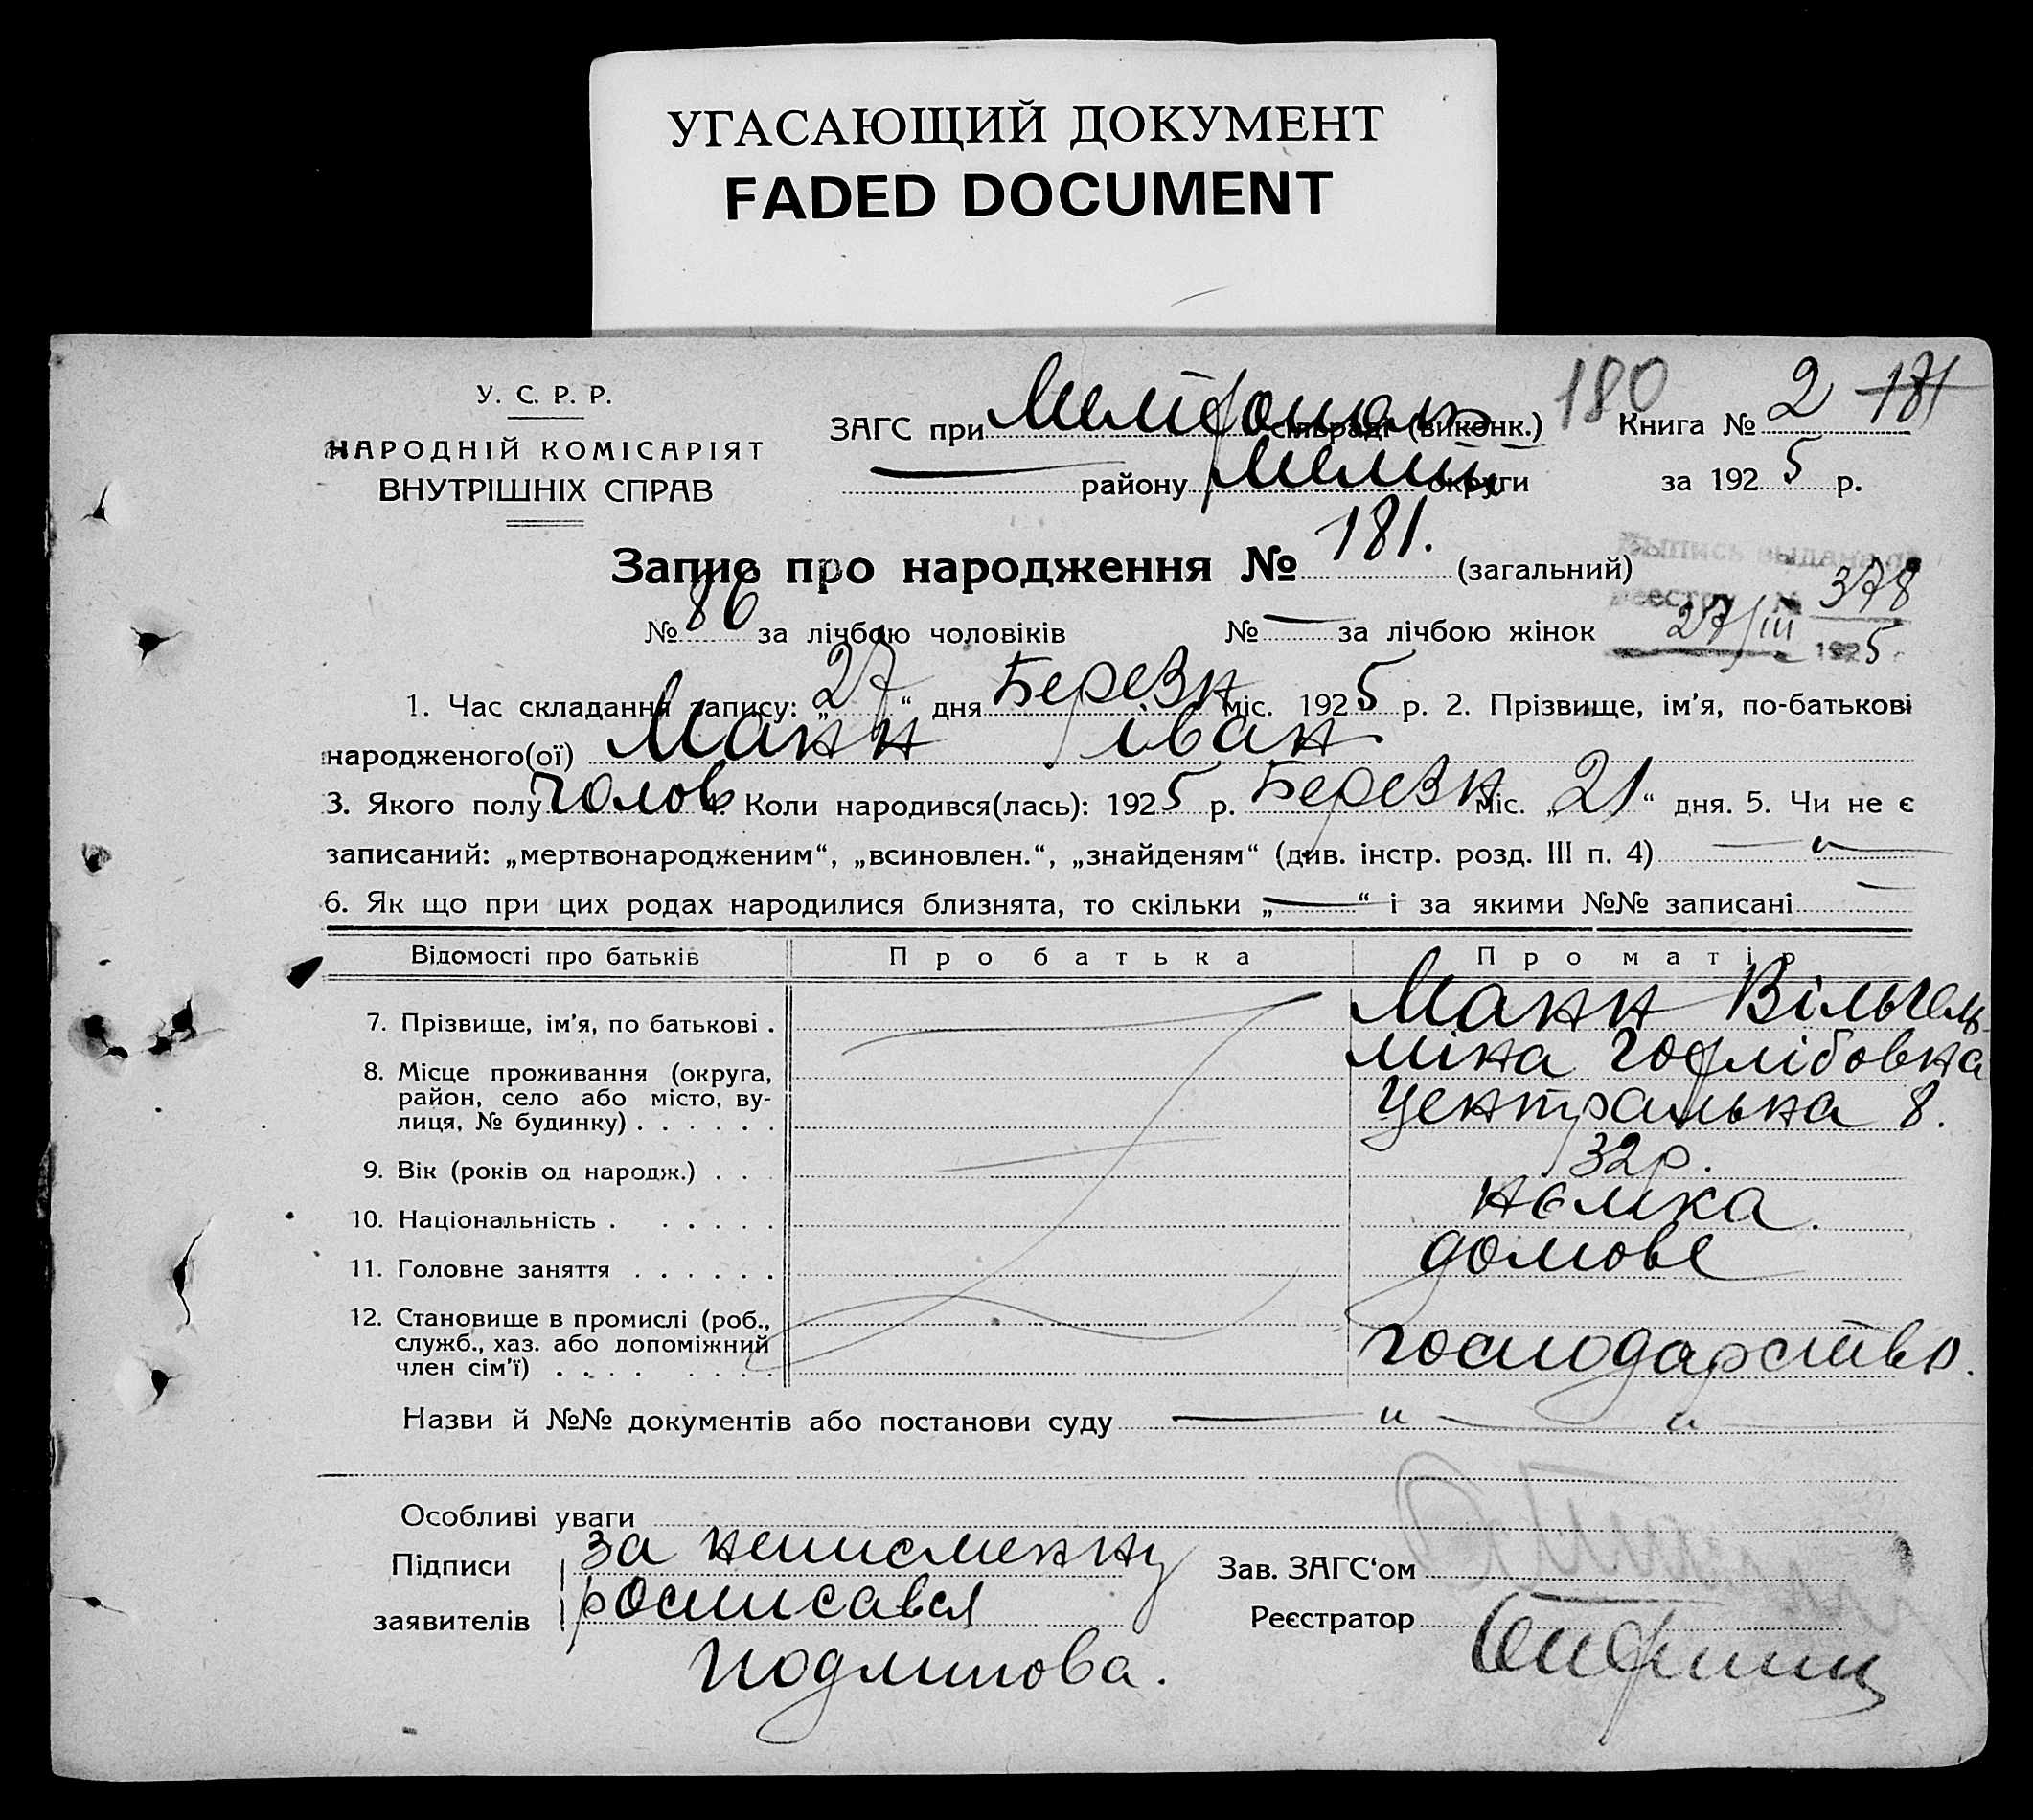 УГАСАЮЩИЙ ДОКУМЕНТ
FADED DOCUMENT
У. С. Р. Р.
НАРОДНІЙ КОМІСАРІЯТ
ВНУТРІШНІХ СПРАВ
ЗАГС при сільраді (виконк.)
180
Книга № 2 181
району округи
за 1925 р.
Запис про народження № 181. (загальний)
Выпись выдана
378
№ 86 за лічбою чоловіків № — за лічбою жінок
27/III 1925
1. Час складання запису: „27“ дня Березн міс. 1925 р. 2. Прізвище, ім’я, по-батькові
народженого(ої) Манн іван
3. Якого полу чолов 4. Коли народився(лась): 1925 р. Березн міс. „21“ дня. 5. Чи не є
записаний: „мертвонародженим“, „всиновлен.“, „знайденям“ (див. інстр. розд. III п. 4) — „ —
6. Як що при цих родах народилися близнята, то скільки „—“ і за якими №№ записані —
Відомості про батьків Про батька Про матір
7. Прізвище, ім’я, по батькові . Манн Вільгель-
міна Готлібовна
8. Місце проживання (округа,
район, село або місто, ву-
лиця, № будинку) . . . . . . Центральна 8.
9. Вік (років од народж.) . . . 32 р.
10. Національність . . . . . . німка.
11. Головне заняття . . . . . . домове
12. Становище в промислі (роб.,
служб., хаз. або допоміжний
член сім’ї) . . . . . . . . господарство.
Назви й №№ документів або постанови суду — „ — „ —
Особливі уваги
Підписи за неписменну
Зав. ЗАГС‘ом
заявителів росписався
Реєстратор